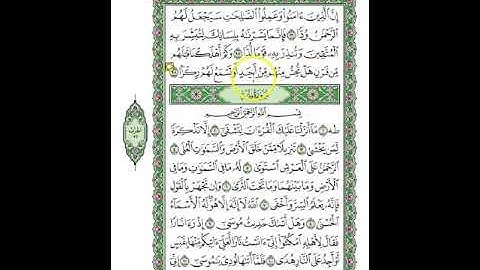 إِنَّ ٱلَّذِينَ ءَامَنُوا۟ وَعَمِلُوا۟ ٱلصَّٰلِحَٰتِ سَيَجْعَلُ لَهُمُ
ٱلرَّحْمَٰنُ وُدًّا ٩٦ فَإِنَّمَا يَسَّرْنَٰهُ بِلِسَانِكَ لِتُبَشِّرَ بِهِ
ٱلْمُتَّقِينَ وَتُنذِرَ بِهِۦ قَوْمًا لُّدًّا ٩٧ وَكَمْ أَهْلَكْنَا قَبْلَهُم
مِّن قَرْنٍ هَلْ تُحِسُّ مِنْهُم مِّنْ أَحَدٍ أَوْ تَسْمَعُ لَهُمْ رِكْزًۢا ٩٨
بِسْمِ ٱللَّهِ ٱلرَّحْمَٰنِ ٱلرَّحِيمِ
طه ١ مَآ أَنزَلْنَا عَلَيْكَ ٱلْقُرْءَانَ لِتَشْقَىٰٓ ٢ إِلَّا تَذْكِرَةً
لِّمَن يَخْشَىٰ ٣ تَنزِيلًا مِّمَّنْ خَلَقَ ٱلْأَرْضَ وَٱلسَّمَٰوَٰتِ ٱلْعُلَى ٤
ٱلرَّحْمَٰنُ عَلَى ٱلْعَرْشِ ٱسْتَوَىٰ ٥ لَهُۥ مَا فِى ٱلسَّمَٰوَٰتِ وَمَا فِى
ٱلْأَرْضِ وَمَا بَيْنَهُمَا وَمَا تَحْتَ ٱلثَّرَىٰ ٦ وَإِن تَجْهَرْ بِٱلْقَوْلِ
فَإِنَّهُۥ يَعْلَمُ ٱلسِّرَّ وَأَخْفَى ٧ ٱللَّهُ لَآ إِلَٰهَ إِلَّا هُوَ لَهُ ٱلْأَسْمَآءُ
ٱلْحُسْنَىٰ ٨ وَهَلْ أَتَىٰكَ حَدِيثُ مُوسَىٰٓ ٩ إِذْ رَءَا نَارًا
فَقَالَ لِأَهْلِهِ ٱمْكُثُوٓا۟ إِنِّىٓ ءَانَسْتُ نَارًا لَّعَلِّىٓ ءَاتِيكُم مِّنْهَا بِقَبَسٍ
أَوْ أَجِدُ عَلَى ٱلنَّارِ هُدًى ١٠ فَلَمَّآ أَتَىٰهَا نُودِىَ يَٰمُوسَىٰٓ ١١ إِنِّىٓ